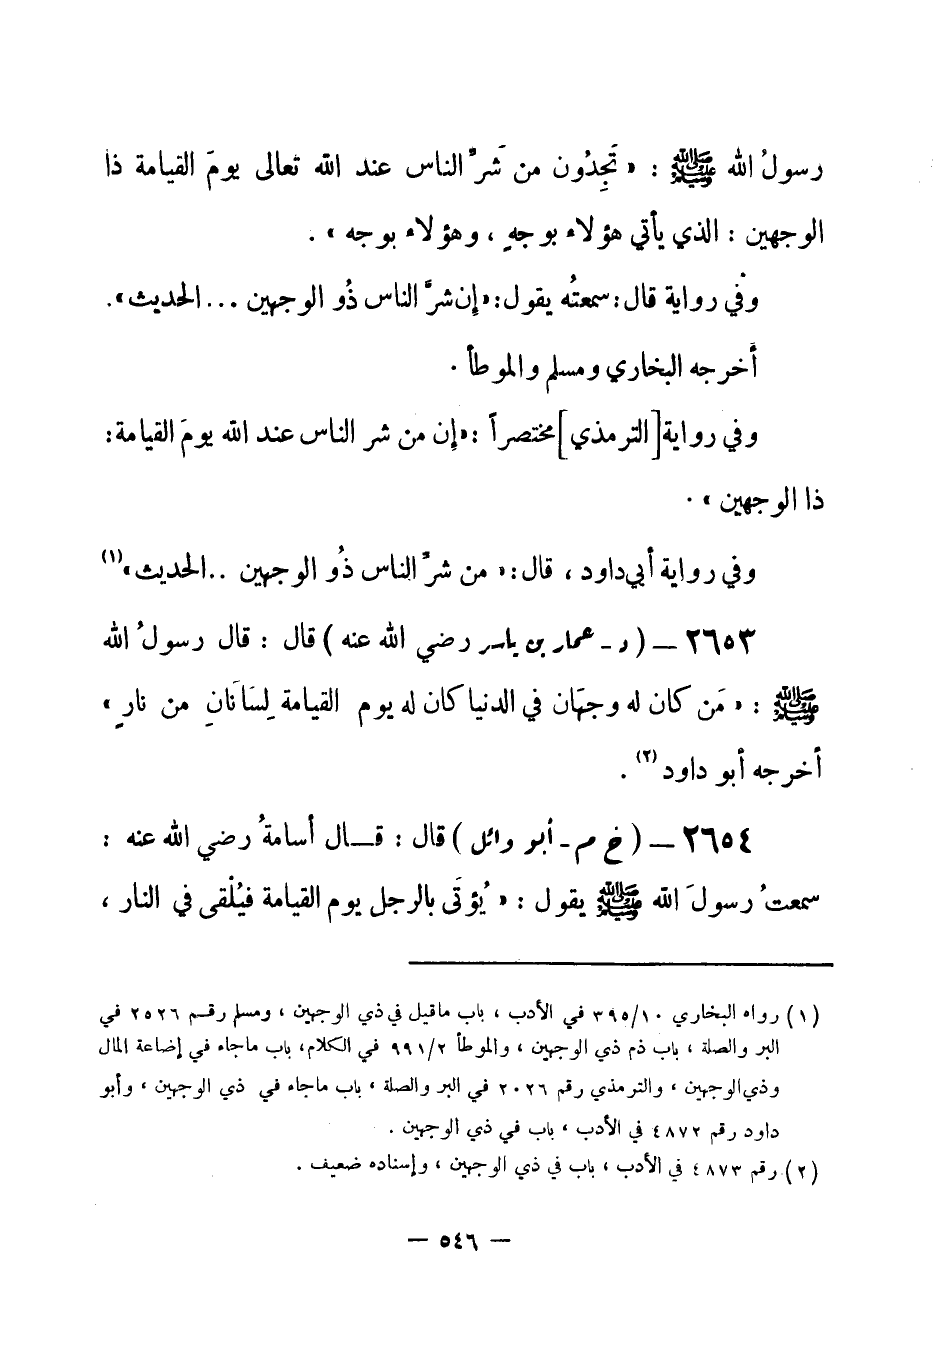 رسولُ الله ﷺ : « تَجِدُون من شَرِّ الناس عند الله تعالى يومَ القيامة ذا
الوجهين : الذي يأتي هؤلاء بوجهٍ ، وهؤلاء بوجه » .
وفي رواية قال : سمعتُه يقول : « إن شرَّ الناس ذُو الوجهين ... الحديث » .
أخرجه البخاري ومسلم والموطأ .
وفي رواية [الترمذي] مختصراً : « إن من شر الناس عند الله يومَ القيامة :
ذا الوجهين » .
وفي رواية أبي داود ، قال : « من شرِّ الناس ذُو الوجهين .. الحديث » (١)
٢٦٥٣ — ( د - عمار بن ياسر رضي الله عنه ) قال : قال رسولُ الله
ﷺ : « مَن كان له وجهَان في الدنيا كان له يوم القيامة لِسَانَانِ من نارٍ »
أخرجه أبو داود (٢) .
٢٦٥٤ — ( خ م - أبو وائل ) قال : قــال أسامةُ رضي الله عنه :
سمعتُ رسولَ الله ﷺ يقول : « يُؤتَى بالرجل يوم القيامة فيُلْقى في النار ،
(١) رواه البخاري ٣٩٥/١٠ في الأدب ، باب ماقيل في ذي الوجهين ، ومسلم رقم ٢٥٢٦ في
البر والصلة ، باب ذم ذي الوجهين ، والموطأ ٩٩١/٢ في الكلام ، باب ماجاء في إضاعة المال
وذي الوجهين ، والترمذي رقم ٢٠٢٦ في البر والصلة ، باب ماجاء في ذي الوجهين ، وأبو
داود رقم ٤٨٧٢ في الأدب ، باب في ذي الوجهين .
(٢) رقم ٤٨٧٣ في الأدب ، باب في ذي الوجهين ، وإسناده ضعيف .
— ٥٤٦ —